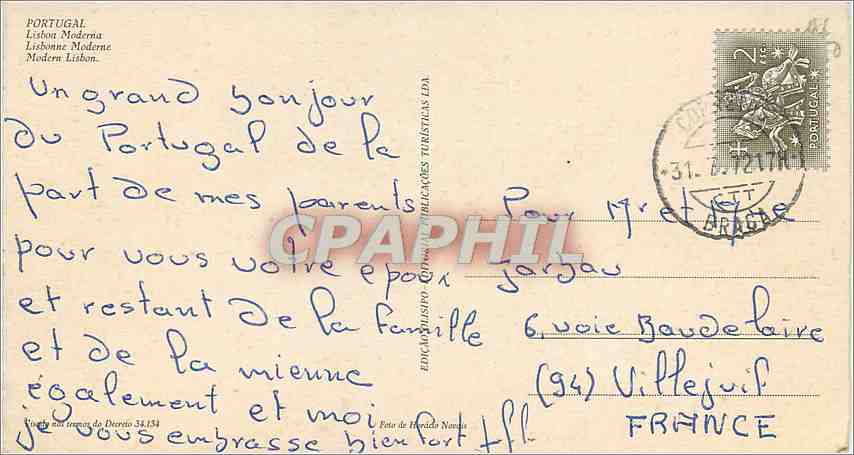 PORTUGAL
Lisboa Moderna
Lisbonne Moderne
Modern Lisbon.
un grand bonjour
du Portugal de la
part de mes parents
pour vous votre epoux
et restant de la famille
et de la mienne
également et moi
je vous embrasse bien fort
Visado nos termos do Decreto 34.134
Foto de Horácio Novais
EDIÇÃO OLISIPO EDITORIAL PUBLICAÇÕES TURÍSTICAS LDA
CPAPHIL
2 ESC.
PORTUGAL
31. 7. 72 17H
CTT
BRAGA
Pour Mr et Mme
6, voie Baudelaire
(94) Villejuif
FRANCE